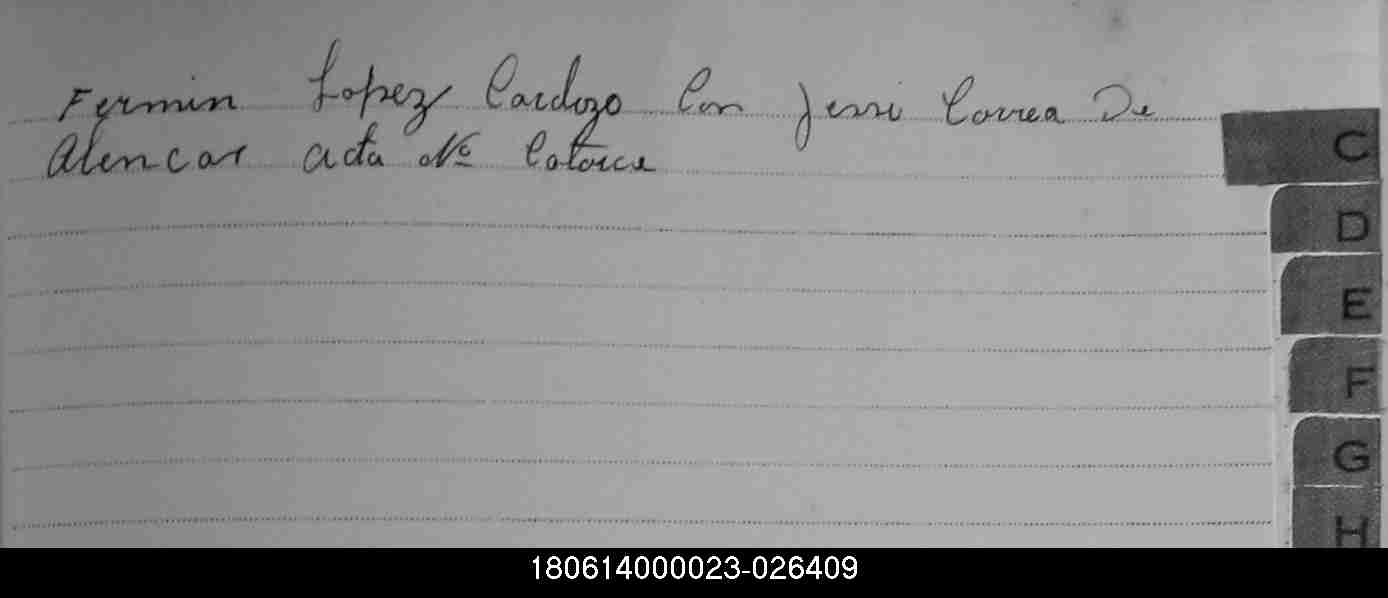 Fermin Lopez Cardozo Con Jessi Correa De
Alencar acta Nº Catorce
C
D
E
F
G
H
180614000023-026409